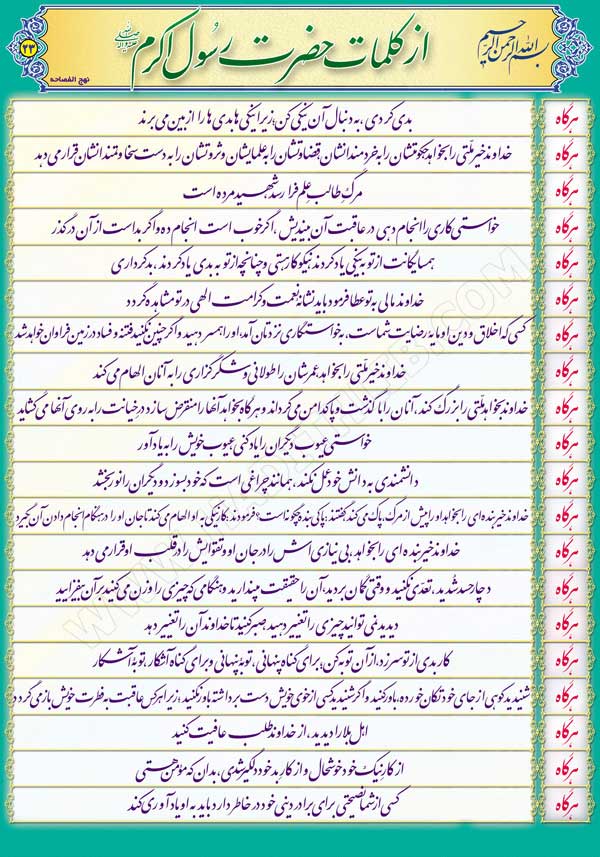 بسم الله الرحمن الرحیم
از کلمات حضرت رسول اکرم
۲۳
نهج الفصاحه
هرگاه بدی کردی، به دنبال آن نیکی کن؛ زیرا نیکی ها بدی ها را از بین می برند
هرگاه خداوند خیر ملّتی را بخواهد حکومتشان را به خردمندانشان، قضاوتشان را به علمایشان و ثروتشان را به دست سخاوتمندانشان قرار می دهد
هرگاه مرگِ طالب عِلم فرا رسد شهید مرده است
هرگاه خواستی کاری را انجام دهی در عاقبت آن بیندیش، اگر خوب است انجام ده و اگر بد است از آن در گذر
هرگاه همسایگانت از تو به نیکی یاد کردند نیکوکار هستی و چنانچه از تو به بدی یاد کردند، بدکرداری
هرگاه خداوند مالی به تو عطا فرمود باید نشانهٔ نعمت و کرامت الهی در تو مشاهده گردد
هرگاه کسی که اخلاق و دین او مایه رضایت شماست، به خواستگاری نزدتان آمد، او را همسر دهید و اگر چنین نکنید فتنه و فساد در زمین فراوان خواهد شد
هرگاه خداوند خیر ملّتی را بخواهد عمرشان را طولانی و شکرگزاری را به آنان الهام می کند
هرگاه خداوند بخواهد ملّتی را بزرگ کند، آنان را با گذشت و پاکدامن می گرداند و هرگاه بخواهد آنها را منقرض سازد در خیانت را به روی آنها می گشاید
هرگاه خواستی عیوب دیگران را یاد کنی عیوب خویش را به یاد آور
هرگاه دانشمندی به دانش خود عمل نکند، همانند چراغی است که خود بسوزد و دیگران را نور بخشد
هرگاه خداوند خیر بنده ای را بخواهد او را پیش از مرگ، پاک می کند گفتند، پاکی بنده چگونه است؟ فرمودند، کار نیکی به او الهام می کند تا جان او را در هنگام انجام دادن آن بگیرد
هرگاه خداوند خیر بنده ای را بخواهد، بی نیازی اش را در جان او و تقوایش را در قلب او قرار می دهد
هرگاه دچار حسد شدید، تعدّی نکنید و وقتی گمان بردید، آن را حقیقت مپندارید و هنگامی که چیزی را وزن می کنید بر آن بیفزایید
هرگاه دیدید نمی توانید چیزی را تغییر دهید صبر کنید تا خداوند آن را تغییر دهد
هرگاه کار بدی از تو سر زد، از آن توبه کن؛ برای گناه پنهانی، توبهٔ پنهانی و برای گناه آشکار، توبهٔ آشکار
هرگاه شنیدید کوهی از جای خود تکان خورده، باور کنید و اگر شنیدید کسی از خوی خویش دست برداشته باور نکنید؛ زیرا هر کس عاقبت به فطرت خویش باز می گردد
هرگاه اهل بلا را دیدید، از خداوند طلب عافیت کنید
هرگاه از کار نیک خود خوشحال و از کار بد خود دلگیر شدی، بدان که مؤمن هستی
هرگاه کسی از شما نصیحتی برای برادر دینی خود در خاطر دارد باید به او یادآوری کند